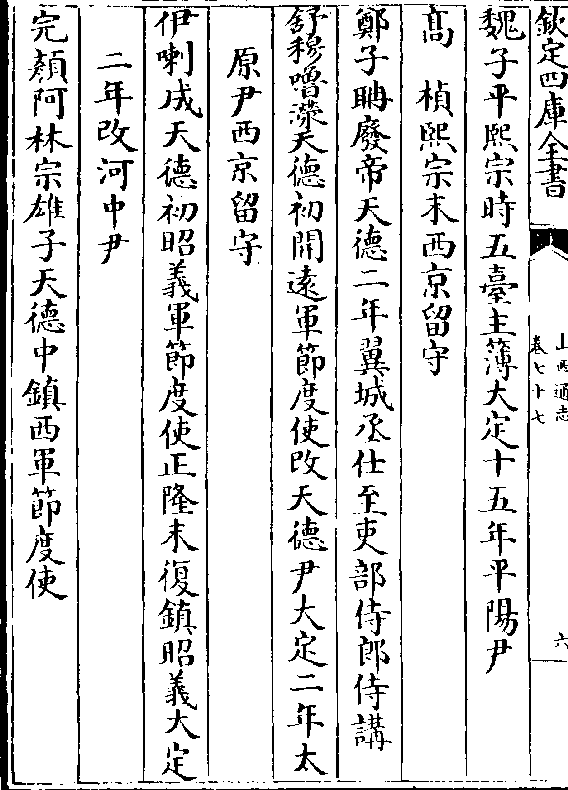 欽定四庫全書
山西通志
卷七十七
六
魏子平熙宗時五臺主簿大定十五年平陽尹
高　楨熙宗末西京留守
鄭子聃廢帝天德二年翼城丞仕至吏部侍郎侍講
舒穆嚕濼天德初開遠軍節度使改天德尹大定二年太
原尹西京留守
伊喇成天德初昭義軍節度使正隆末復鎮昭義大定
二年改河中尹
完顏阿林宗雄子天德中鎮西軍節度使